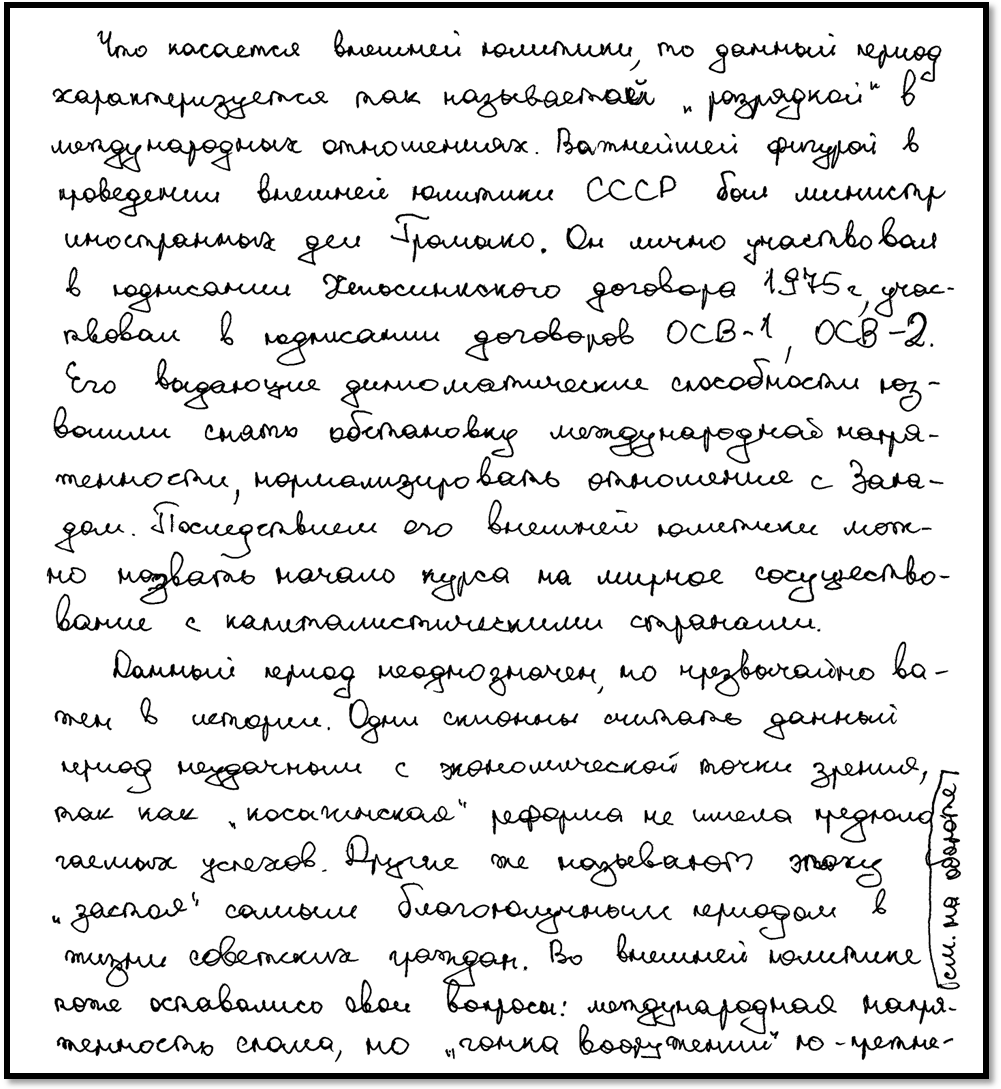 Что касается внешней политики, то данный период
характеризуется так называемой „разрядкой" в
международных отношениях. Важнейшей фигурой в
проведении внешней политики СССР был министр
иностранных дел Громыко. Он лично участвовал
в подписании Хельсинкского договора 1975г, учас-
твовал в подписании договоров ОСВ-1, ОСВ-2.
Его выдающие дипломатические способности поз-
волили снять обстановку международной напря-
женности, нормализировать отношение с Запа-
дом. Последствием его внешней политики мож-
но назвать начало курса на мирное сосущество-
вание с капиталистическими странами.
Данный период неоднозначен, но чрезвычайно ва-
жен в истории. Одни склонны считать данный
период неудачным с экономической точки зрения,
так как „косыгинская" реформа не имела предпола
гаемых успехов. Другие же называют эпоху
„застоя" самым благополучным периодом в
жизни советских граждан. Во внешней политике
тоже оставались свои вопросы: международная напря-
женность спала, но „гонка вооружений" по-прежне-
(см. на обороте)